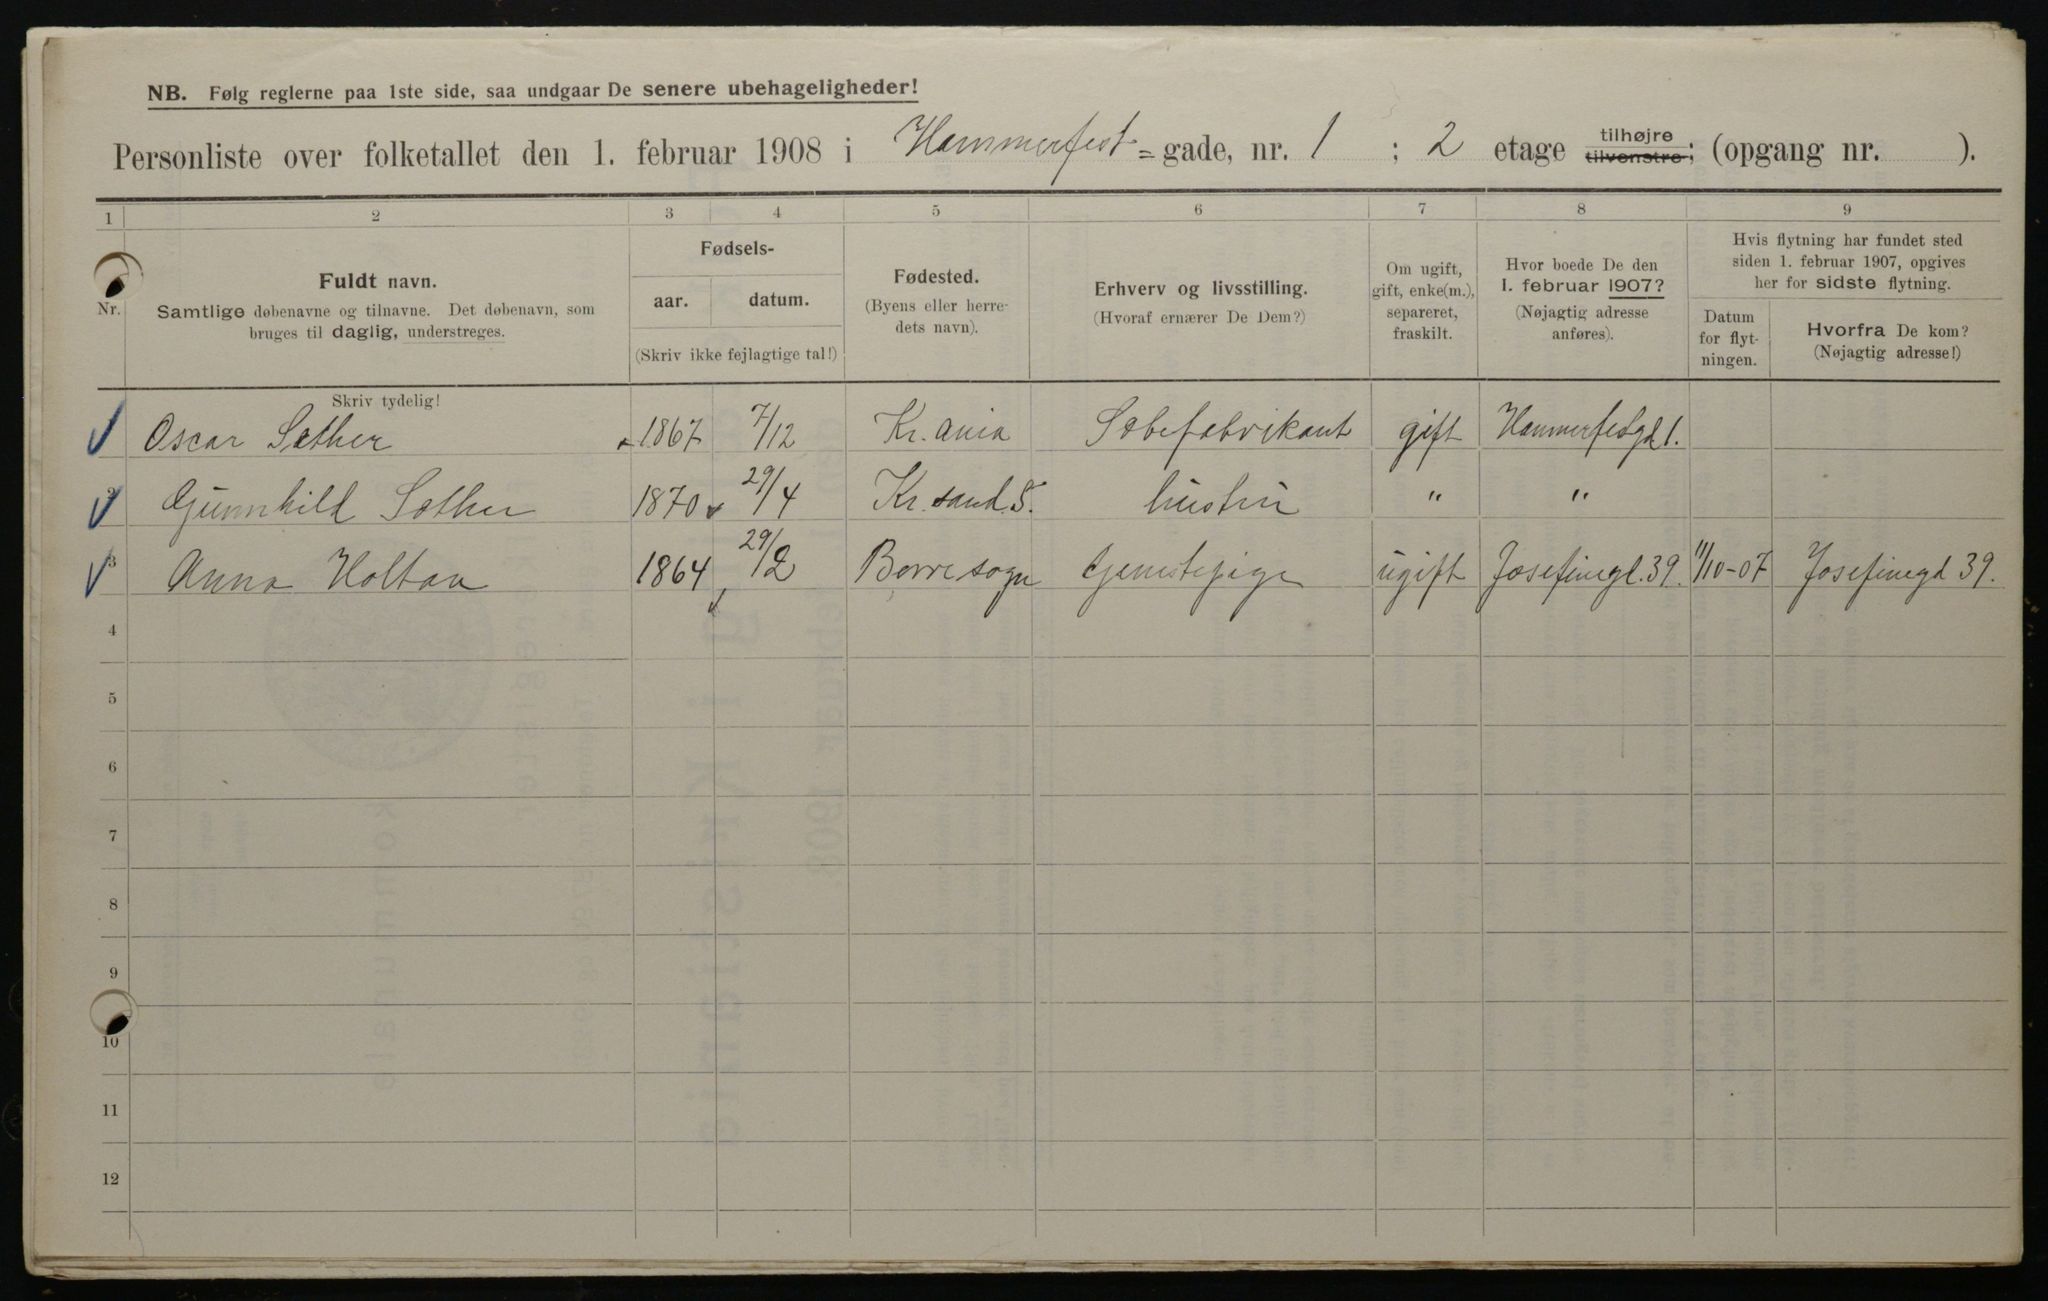 NB. Følg reglerne paa 1ste side, saa undgaar De senere ubehageligheder!
Personliste over folketallet den 1. februar 1908 i Hammerfest=gade, nr. 1 ; 2 etage tilhøjre tilvenstre; (opgang nr. ).
1 2 3 4 5 6 7 8 9
Nr.
Fuldt navn.
Samtlige døbenavne og tilnavne. Det døbenavn, som
bruges til daglig, understreges.
Skriv tydelig!
Fødsels-
aar. datum.
(Skriv ikke fejlagtige tal!)
Fødested.
(Byens eller herre-
dets navn).
Erhverv og livsstilling.
(Hvoraf ernærer De Dem?)
Om ugift,
gift, enke(m.),
separeret,
fraskilt.
Hvor boede De den
1. februar 1907?
(Nøjagtig adresse
anføres).
Hvis flytning har fundet sted
siden 1. februar 1907, opgives
her for sidste flytning.
Datum
for flyt-
ningen.
Hvorfra De kom?
(Nøjagtig adresse!)
Oscar Sæther 1867 7/12 Kr.ania Sæbefabrikant gift Hammerfestgd 1.
2 Gunnhild Sæther 1870 29/4 Kr.sand. S. hustru " "
3 Anna Holtan 1864 29/2 Borre sogn Tjenestepige ugift Josefinegd. 39. 11/10-07 Josefinegd 39.
4
5
6
7
8
9
10
11
12